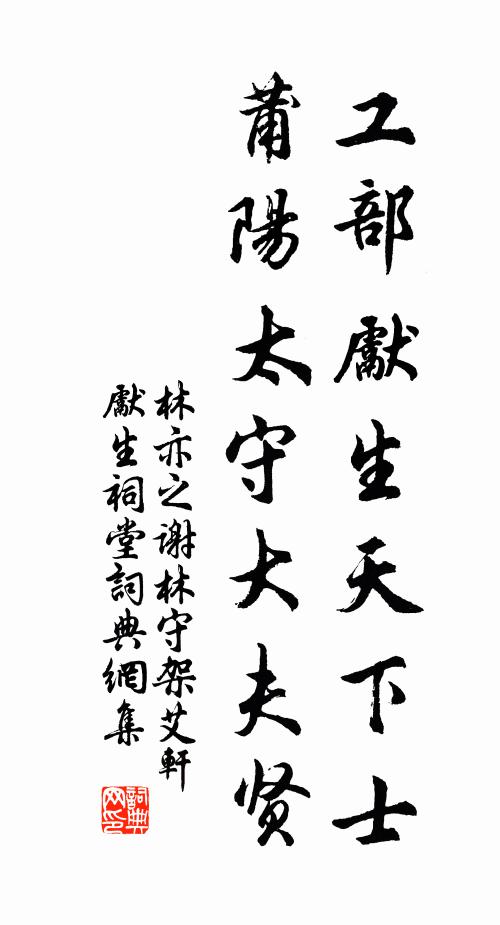 工部獻生天下士
莆陽太守大夫贤
林亦之谢林守架艾軒
獻生祠堂詞典網集
詞典网印